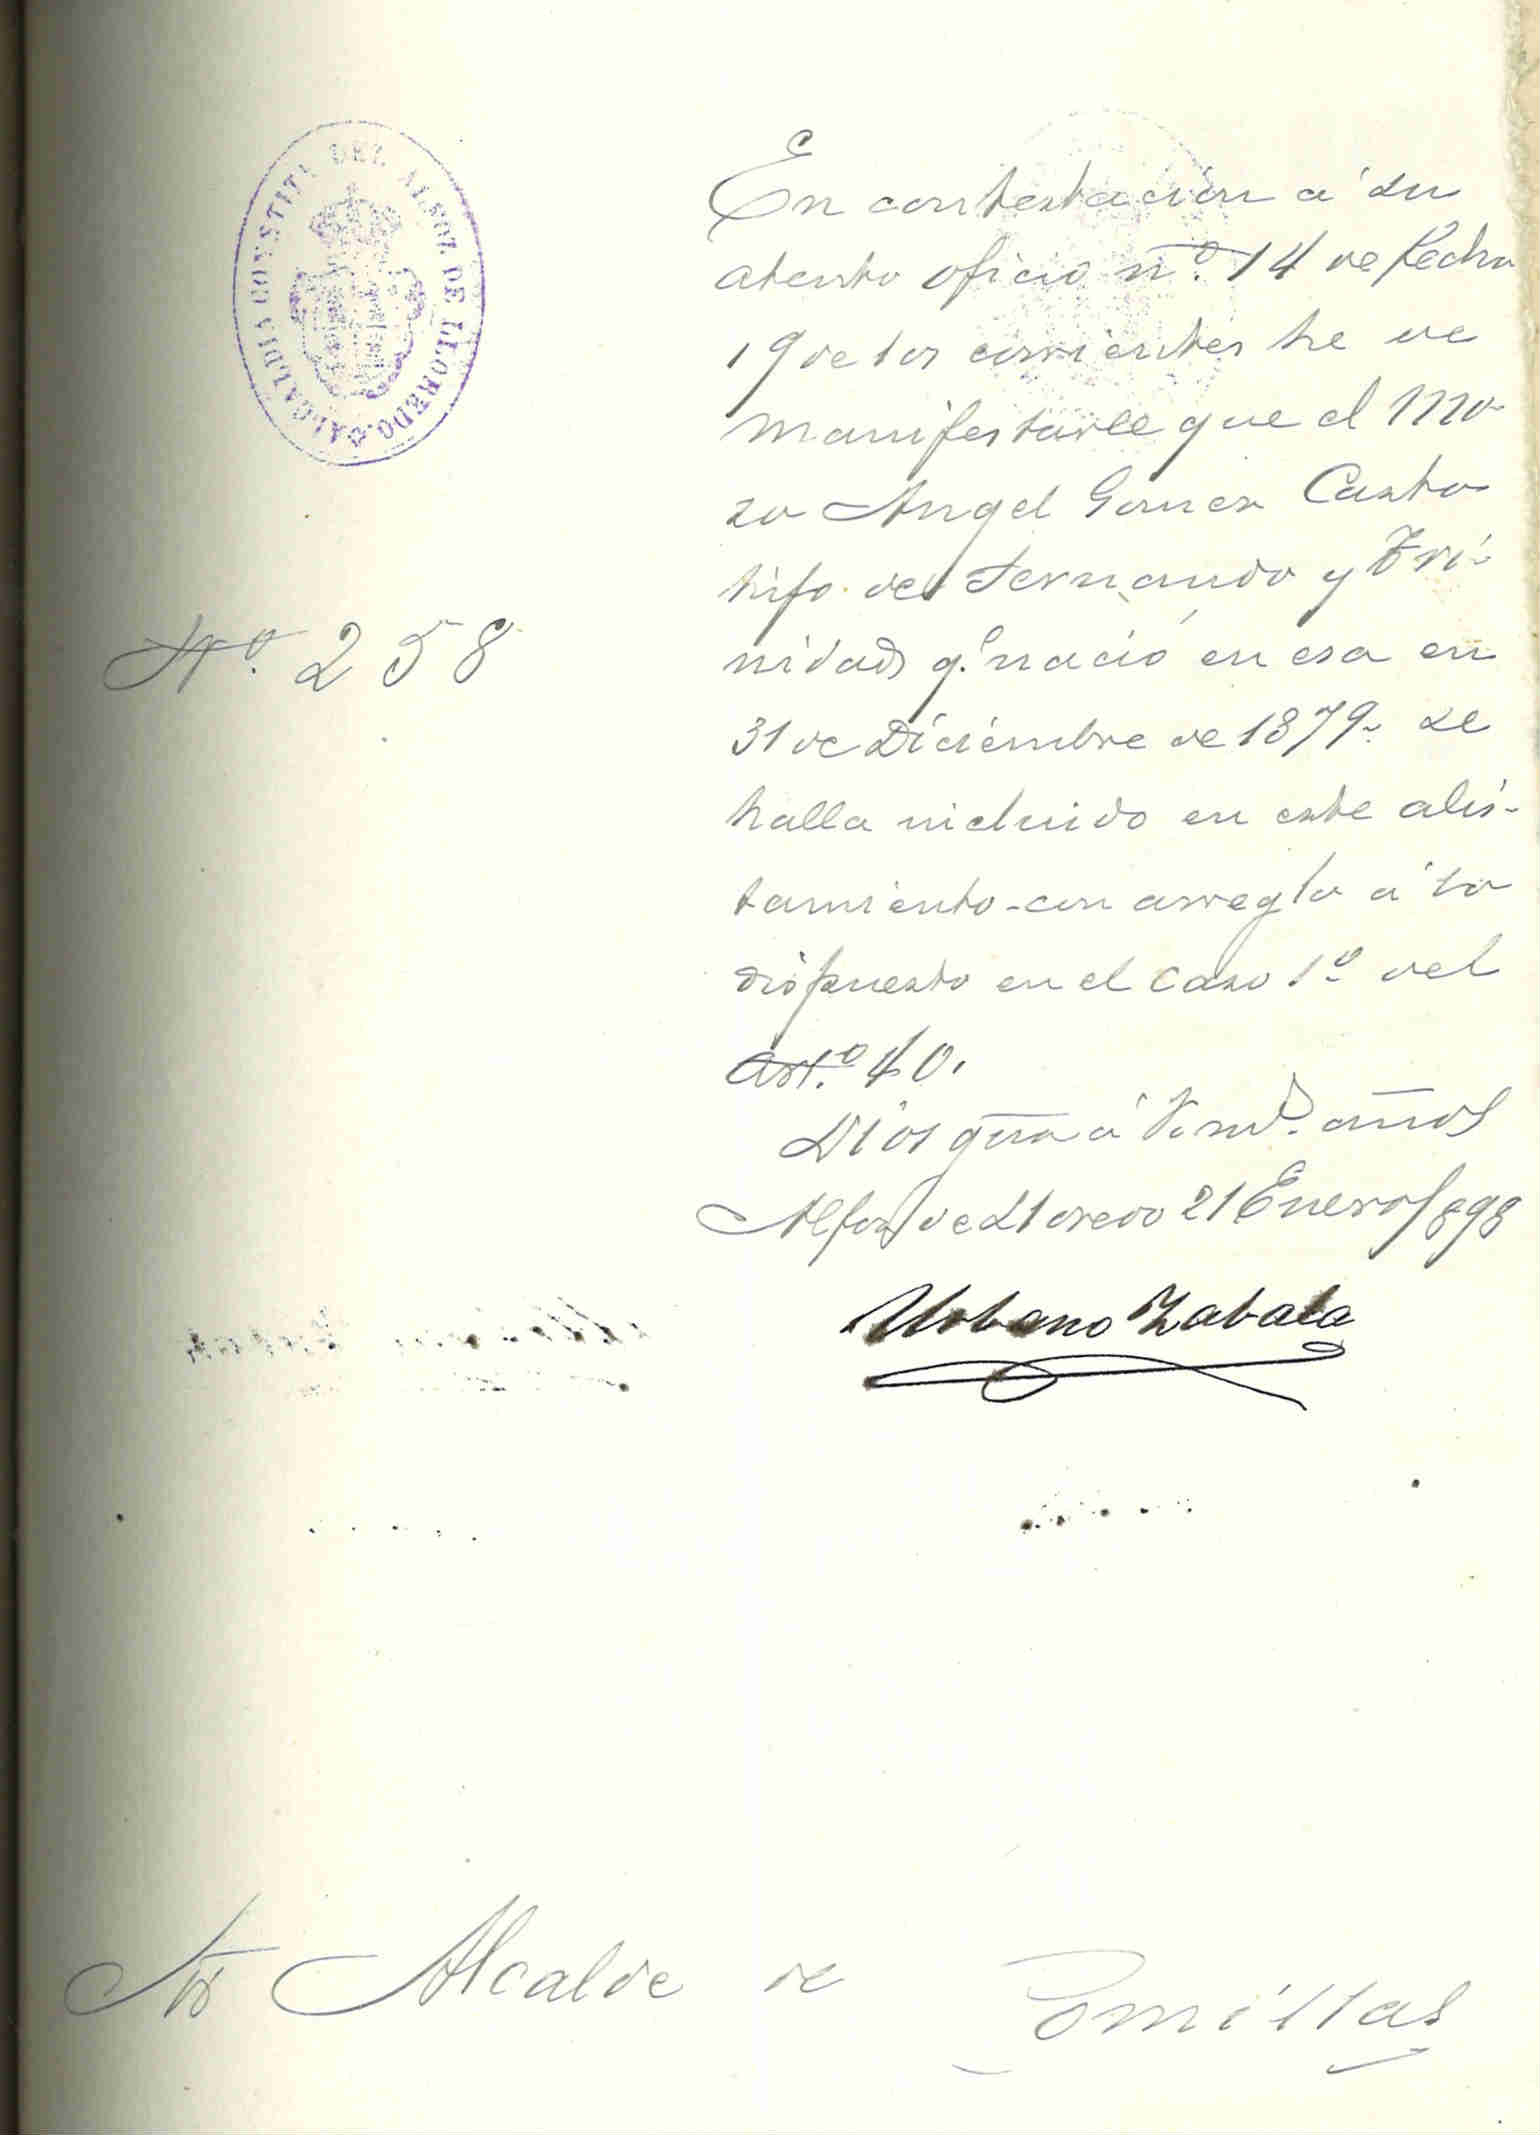 ALCALDIA CONSTITVL. DEL ALFOZ DE LLOREDO
En contestación á su
atento oficio nº. 14 de fecha
19 de los corrientes he de
manifestarle que el mo-
zo Angel Gomez Casto
hijo de Fernando y Tri-
nidad q.' nació en esa en
31 de Diciembre de 1879. se
halla incluido en este alis-
tamiento con arreglo á lo
dispuesto en el caso 1º del
art.º 40.
Nº. 258
Dios gue á V. m.s. años
Alfoz de Lloredo 21 Enero 1898
Urbano Zabala
Sr Alcalde de Comillas